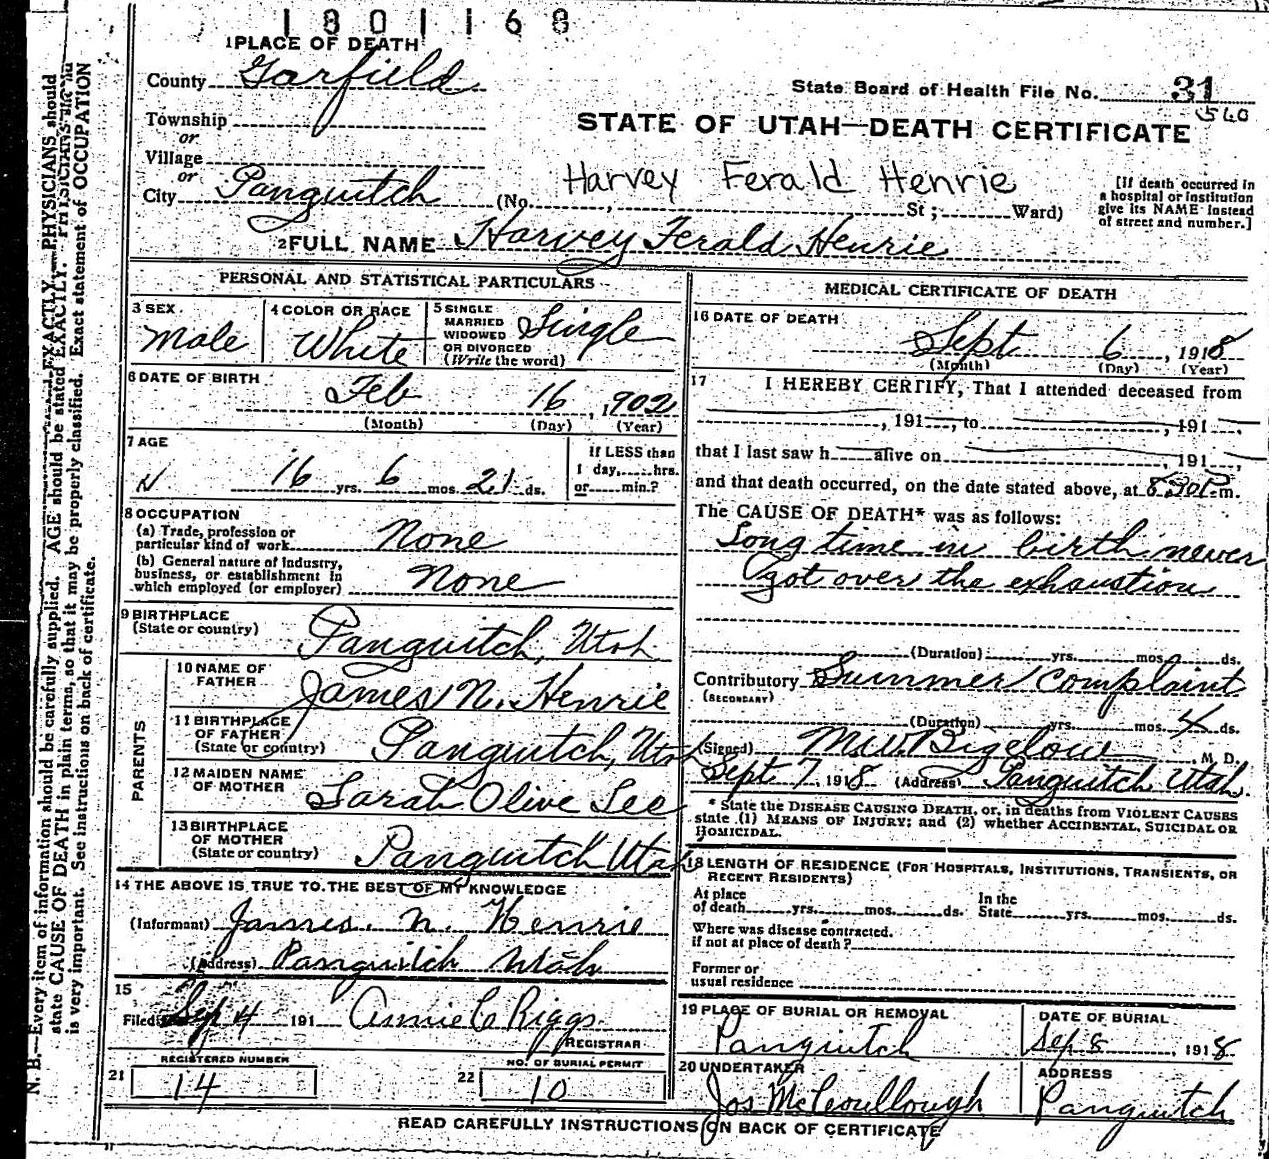 1801168
1 PLACE OF DEATH
County Garfield
State Board of Health File No. 31
560
Township
or
Village
or
City Panguitch
STATE OF UTAH—DEATH CERTIFICATE
Harvey Ferald Henrie
(No. , St ; Ward)
[If death occurred in
a hospital or institution
give its NAME instead
of street and number.]
2 FULL NAME Harvey Ferald Henrie
PERSONAL AND STATISTICAL PARTICULARS
3 SEX
Male
4 COLOR OR RACE
White
5 SINGLE
MARRIED
WIDOWED
OR DIVORCED
(Write the word)
Single
6 DATE OF BIRTH
Feb 16, 1902
(Month) (Day) (Year)
7 AGE
16 yrs. 6 mos. 21 ds.
If LESS than
1 day, hrs.
or min.?
8 OCCUPATION
(a) Trade, profession or
particular kind of work None
(b) General nature of industry,
business, or establishment in
which employed (or employer) None
9 BIRTHPLACE
(State or country) Panguitch, Utah
PARENTS
10 NAME OF
FATHER James N. Henrie
11 BIRTHPLACE
OF FATHER
(State or country) Panguitch, Utah
12 MAIDEN NAME
OF MOTHER Sarah Olive Lee
13 BIRTHPLACE
OF MOTHER
(State or country) Panguitch Utah
14 THE ABOVE IS TRUE TO THE BEST OF MY KNOWLEDGE
(Informant) James. N. Henrie
(Address) Panguitch Utah
15
Filed Sep 4 191 Annie C Riggs
REGISTRAR
21 REGISTERED NUMBER
14
22 NO. OF BURIAL PERMIT
10
MEDICAL CERTIFICATE OF DEATH
16 DATE OF DEATH
Sept 6, 1918
(Month) (Day) (Year)
17 I HEREBY CERTIFY, That I attended deceased from
, 191 , to , 191 ,
that I last saw h alive on , 191 ,
and that death occurred, on the date stated above, at 8 30 P m.
The CAUSE OF DEATH* was as follows:
Long time in birth never
got over the exhaustion
(Duration) yrs. mos. ds.
Contributory Summer Complaint
(SECONDARY)
(Duration) yrs. mos. 4 ds.
(Signed) M.W. Bigelow M. D.
Sept 7, 1918 (Address) Panguitch Utah.
* State the DISEASE CAUSING DEATH, or, in deaths from VIOLENT CAUSES
state (1) MEANS OF INJURY; and (2) whether ACCIDENTAL, SUICIDAL OR
HOMICIDAL.
18 LENGTH OF RESIDENCE (FOR HOSPITALS, INSTITUTIONS, TRANSIENTS, OR
RECENT RESIDENTS)
At place
of death yrs. mos. ds.
In the
State yrs. mos. ds.
Where was disease contracted.
if not at place of death?
Former or
usual residence
19 PLACE OF BURIAL OR REMOVAL
Panguitch
DATE OF BURIAL
Sep 8, 1918
20 UNDERTAKER
Jos McCoullough
ADDRESS
Panguitch
READ CAREFULLY INSTRUCTIONS ON BACK OF CERTIFICATE
N. B.—Every item of information should be carefully supplied. AGE should be stated EXACTLY. PHYSICIANS should
state CAUSE OF DEATH in plain terms, so that it may be properly classified. Exact statement of OCCUPATION
is very important. See instructions on back of certificate.